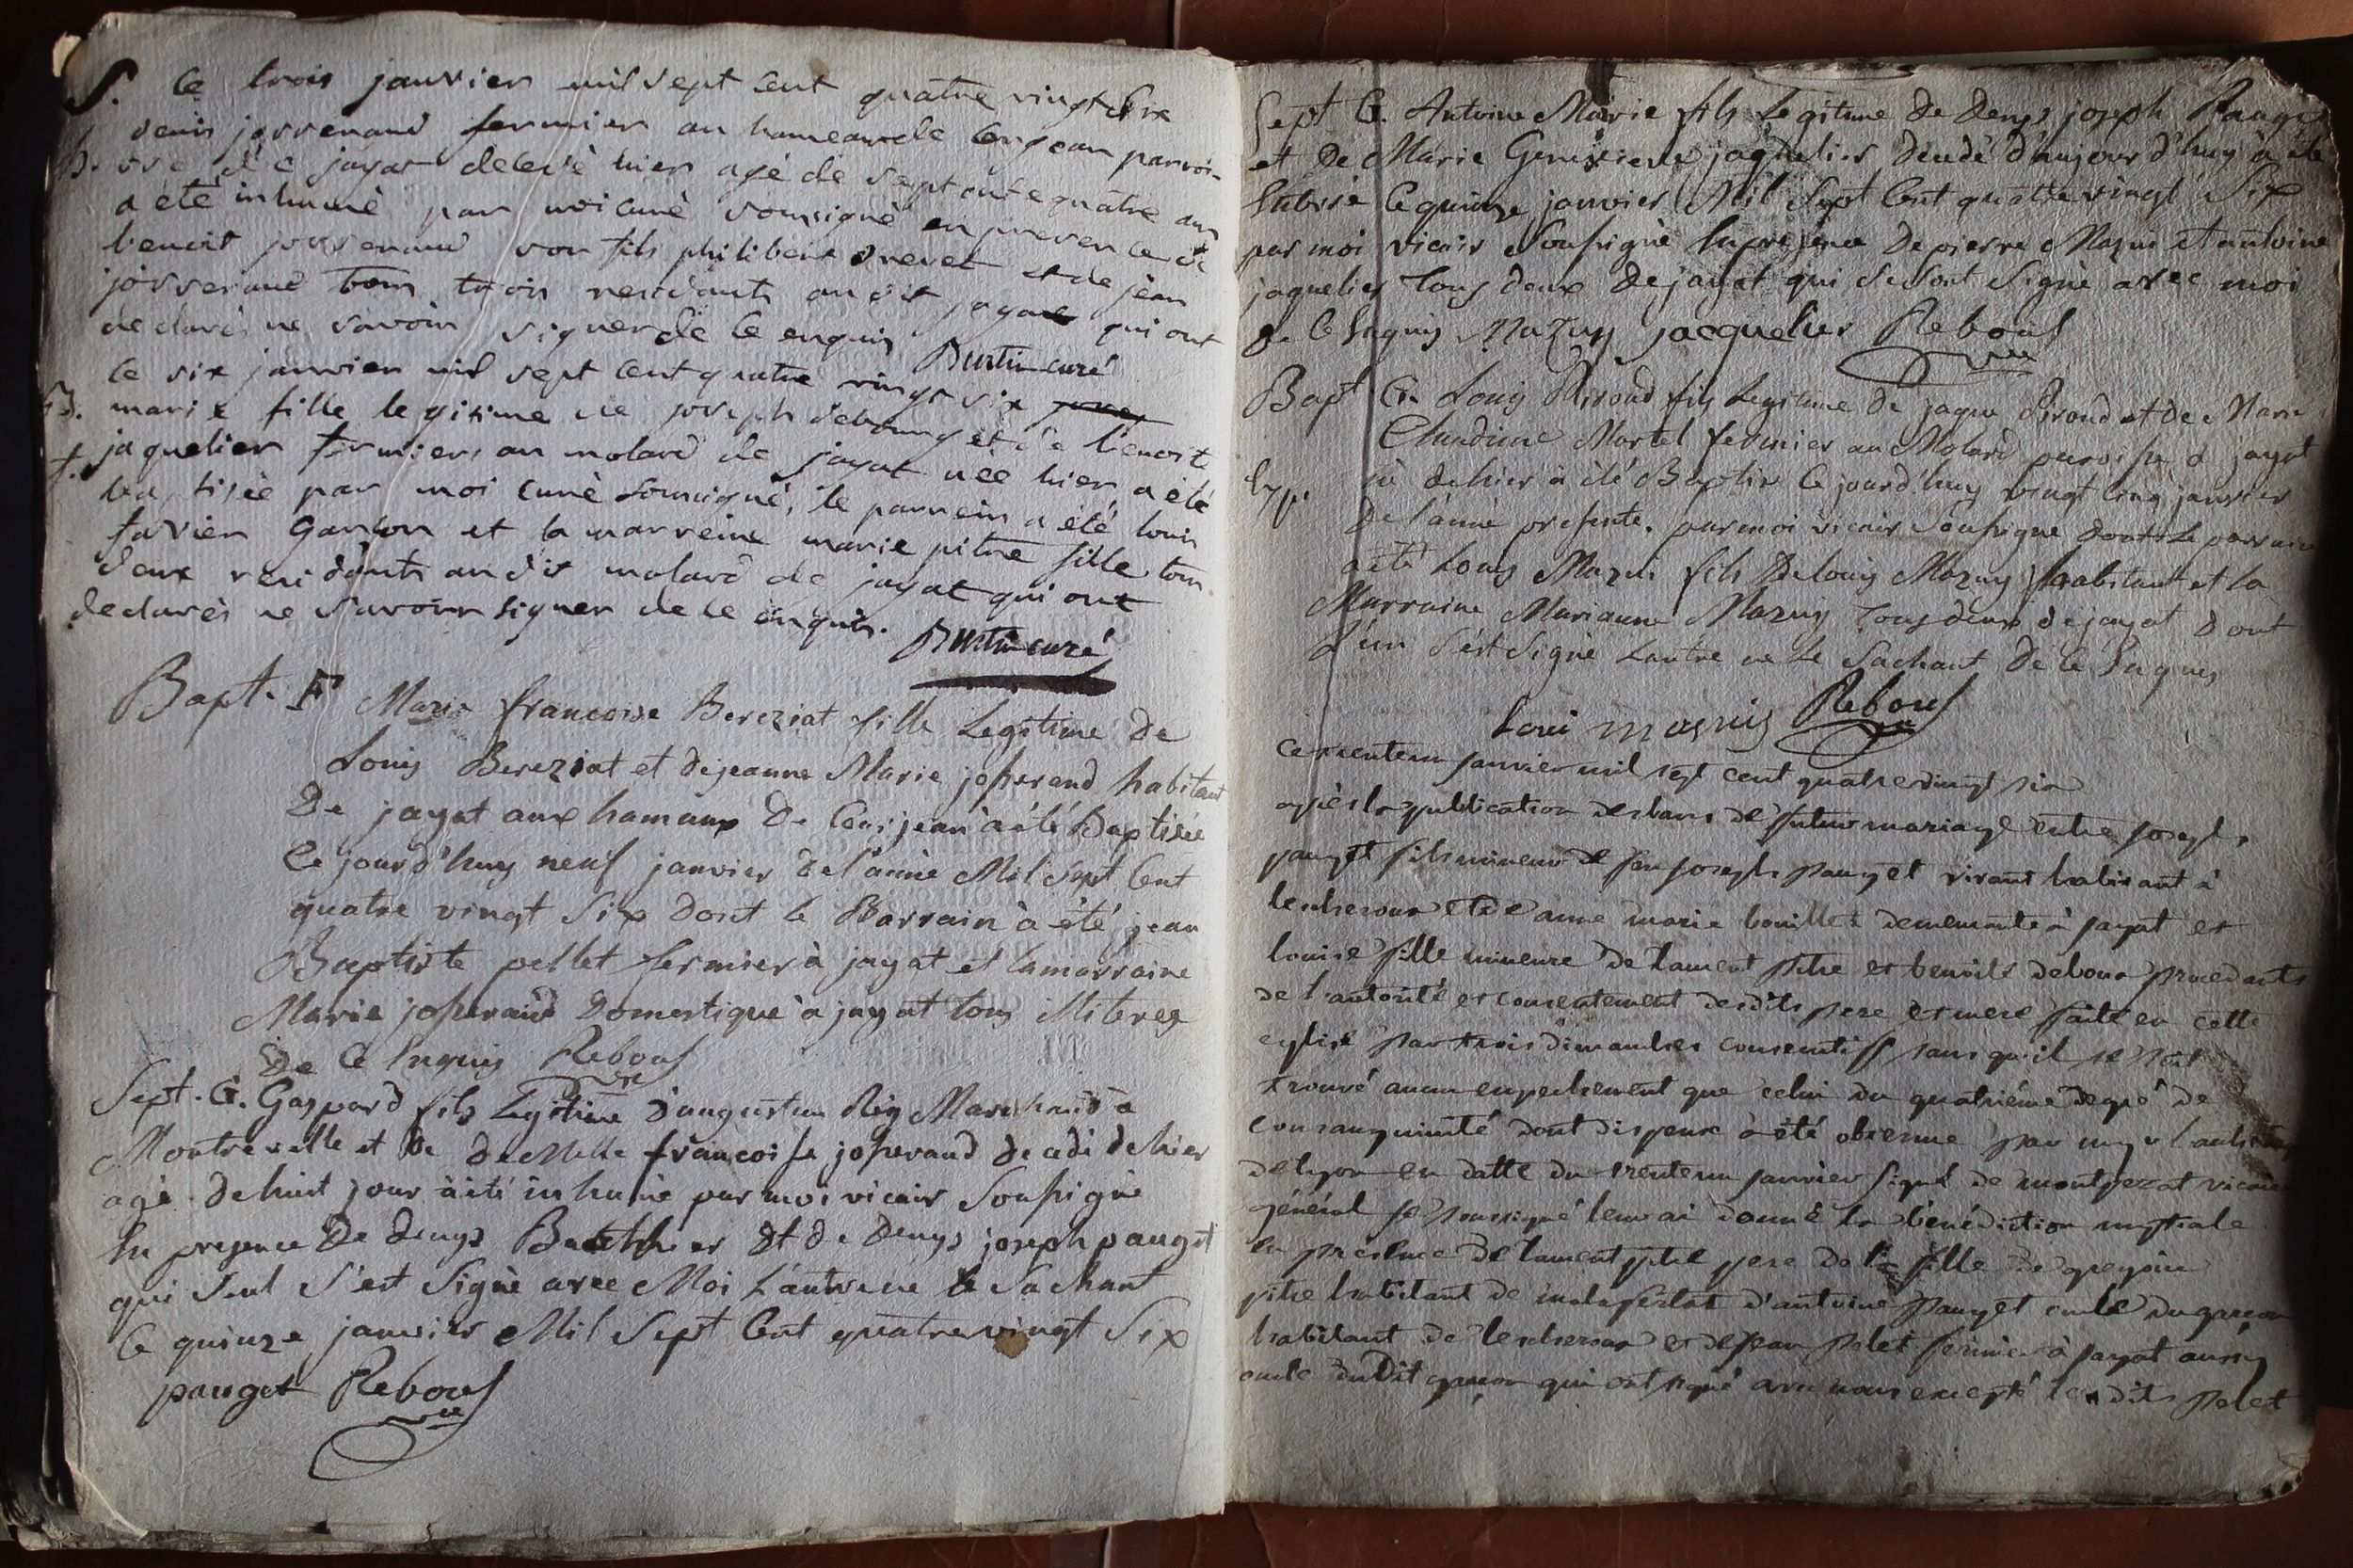 S. Ce trois janvier mil sept cent quatre vingt six
denis josserand fermier au hameau de Conjean paroi-
h. sse de jayat décédé hier agé de septante quatre ans
a été inhumé par moi curé soussigné en presence de
benoit josserand son fils philibert brevet et de jean
josserand tous trois residants au dit jayat qui ont
declarés ne savoir signer de ce enquis Burtin curé
Ce six janvier mil sept cent quatre vingt six
B. marie fille legitime de joseph debourg et de benoite
f. jaquelier fermiers au molard de jayat née hier a été
baptisée par moi curé soussigné, le parrein a été louis
favier Garçon et la marreine marie pitre fille tous
deux residants au dit molard de jayat qui ont
declarés ne savoir signer de ce enquis.
Burtin curé
Bapt. F Marie francoise Bereziat fille Legitime De
Louis Bereziat et de jeanne Marie joserand habitant
De jayat aux hamaux De Conjean à été Baptisée
Ce jourd'huy neuf janvier de l'année Mil Sept Cent
quatre vingt Six Dont le Parrain à été jean
Baptiste pellet fermier à jayat et la marraine
Marie joserand Domestique à jayat tous illiterez
De Ce Enquis Reboul
vre
Sept. G. Gaspard fils Legitime d'augustin Rey Marchand a
Montrevelle et De Demelle françoise joserand decedé de hier
agé de huit jour à été inhumé par moi vicair Soussigné
En presence De denys Bacther Et de Denys joseph pauget
qui Seul S'est Signé avec Moi L'autre ne le Sachant
Ce quinze janvier Mil Sept Cent quatre vingt Six
pauget Reboul
vre
Sept G. Antoine Marie fils Legitime De Denys joseph Pauget
et De Marie jaquelier décédé d'aujourd'huy à été
Ce quinze janvier Mil Sept Cent quatre vingt Six
par moi vicair Soussigné En presence De pierre Mazui et antoine
jaquelier Tous deux De jayat qui se sont Signé avec moi
De Ce Enquis Mazuy jacquelier Reboul
vre
Bapt G. Louis Piroud fils Legitime De jaque Piroud et De Marie
Claudine Martel fermier au Molard paroisse d jayat
né de hier à été Baptisé Ce jourd'huy vingt cinq janvier
De l'année presente. par moi vicair Soussigné dont Le parrain
à été Louis Mazui fils De louis Mazuy habitant et La
Marraine Marianne Mazuy Tous deux de jayat dont
L'un S'est Signé L'autre ne Le Sachant De Ce Enquis
Loui masuis Reboul
ce trente un janvier mil sept cent quatre vingt six
après la publication des bans de futur mariage entre joseph
pauget fils mineur de feu joseph pauget vivant habitant à
lescheroux et de anne marie bouillet demeurante à jayat et
louise fille mineure de laurent pitre et benoite debour procedants
de l'autorité et consentement desdits pere et mere faite en cette
eglise par trois dimanches consecutifs sans qu'il se soit
trouvé aucun empechement que celui du quatrième degré de
consanguinité dont dispense à été obtenue par
de lyon en datte du trente un janvier signé de montperat vicaire
général je soussigné leur ai donné la bénédiction nuptiale
en présence de laurent pitre pere de la fille de gregoire
pitre habitant de malafretaz d'antoine pauget oncle du garçon
habitant de lescheroux et de jean pelet fermier à jayat aussy
oncle dudit garçon qui ont signé avec nous excepté dit pelet